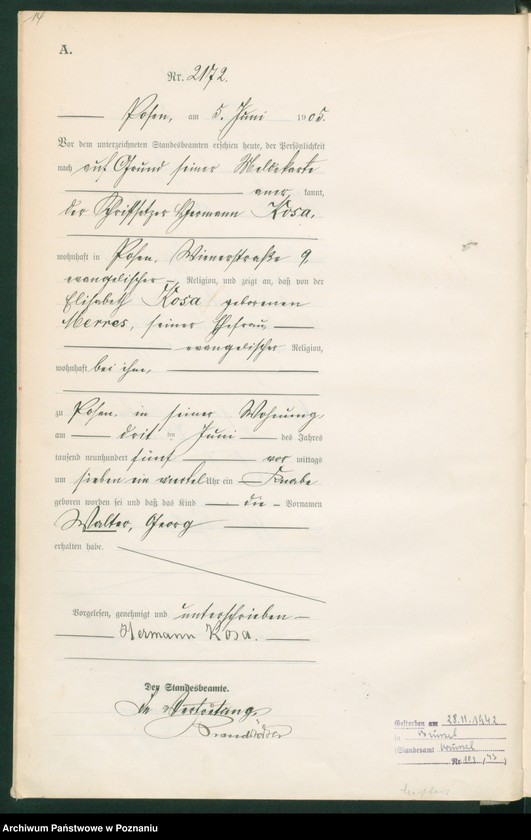 14
A.
Nr. 2172.
Posen, am 5. Juni 1905.
Vor dem unterzeichneten Standesbeamten erschien heute, der Persönlichkeit
nach auf Grund seiner Meldekarte
aner kannt,
der Schriftsetzer Hermann Kosa,
wohnhaft in Posen, Wienerstraße 9,
evangelischer Religion, und zeigt an, daß von der
Elisabeth Kosa geborenen
Merres, seiner Ehefrau
evangelischer Religion,
wohnhaft bei ihm,
zu Posen in seiner Wohnung,
am drit ten Juni des Jahres
tausend neunhundert fünf vor mittags
um sieben ein viertel Uhr ein Knabe
geboren worden sei und daß das Kind die Vornamen
Walter, Georg
erhalten habe.
Vorgelesen, genehmigt und unterschrieben
Hermann Kosa.
Der Standesbeamte.
In Vertretung
Gestorben am 28.11.1942
in
(Standesamt
Nr.
Archiwum Państwowe w Poznaniu